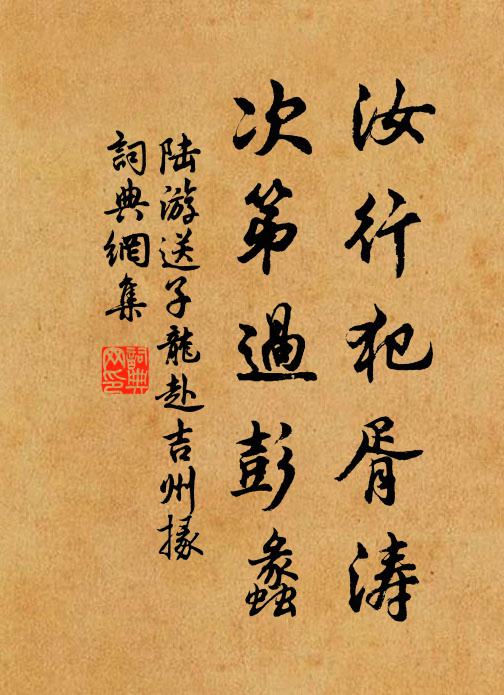 汝行犯胥涛
次第過彭蠡
陆游送子龍赴吉州掾
詞典網集
詞典
网印